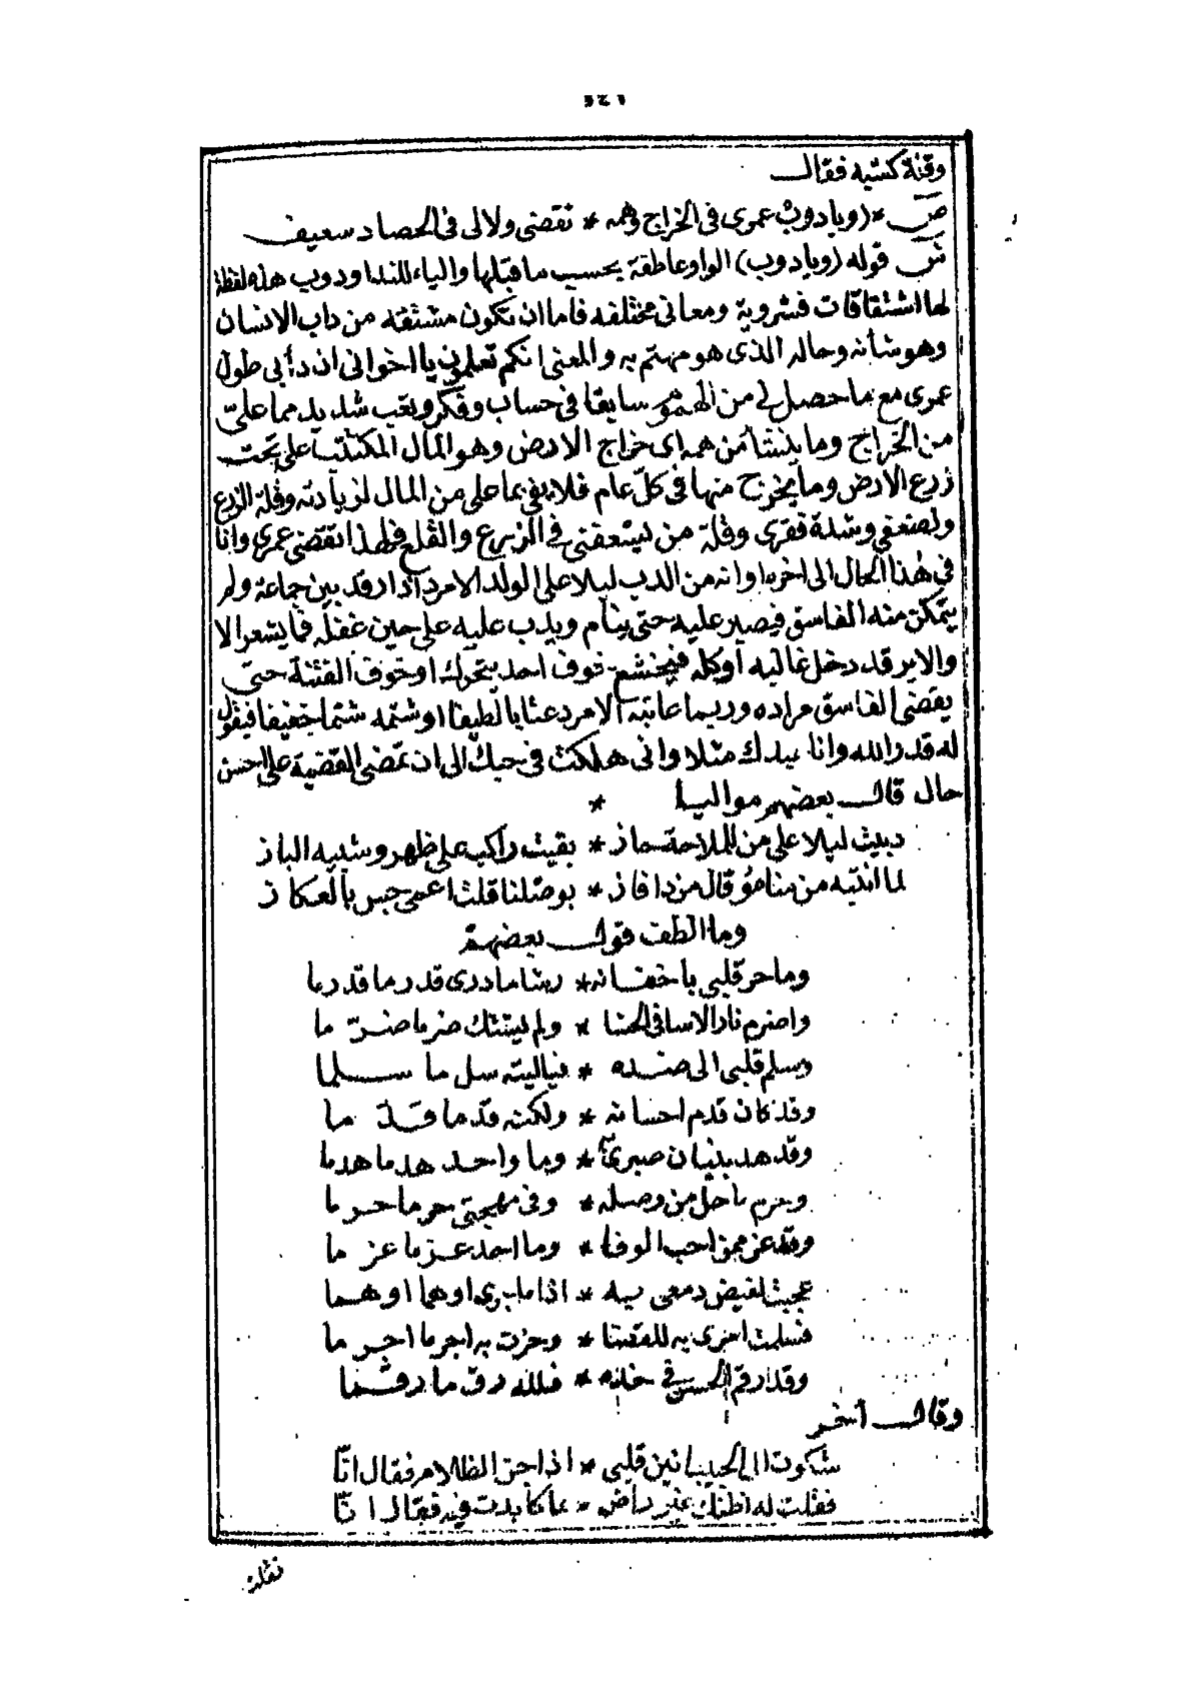 وقلة كسبه فقال
ص * (ويا دوب عمرى فى الخراج وهمه * تقضى ولا لى فى الحصاد سعيف
ش قوله (ويا دوب) الواو عاطفة بحسب ما قبلها والياء للندا ودوب هذه لفظة
لها اشتقاقات فشروية ومعانى مختلفه فاما ان تكون مشتقه من داب الانسان
وهو شأنه وحاله الذى هو مهتم به والمعنى انكم تعلمونى يا اخوانى ان دأبى طول
عمرى مع ما حصل لى من الهموم سابقا فى حساب وفكر وتعب شديد مما علىّ
من الخراج وما ينشأ من همه اى خراج الارض وهو المال المكتتب على تحت
زرع الارض وما يخرج منها فى كل عام فلا يفى بما على من المال لزيادته وقلة الزرع
ولضعفى وشدة فقرى وقلة من يسعفنى فى الزرع والقلع فلهذا تقضى عمرى وانا
فى هذا الحال الى اخره او انه من الدب ليلا على الولد الامرد اذا رقد بين جماعة ولم
يتمكن منه الفاسق فيصبر عليه حتى ينام ويدب عليه على حين غفله فما يشعر الا
والاير قد دخل غالبه أو كله فيخشى خوف احد يتحرك او خوف الفتنة حتى
يقضى الفاسق مراده وربما عاتبه الامرد عتابا لطيفا او شتمه شتما خفيفا فيقول
له قدر الله وانا عبدك مثلا وانى هلكت فى حبك الى ان تمضى القضية على احسن
حال قال بعضهم مواليا *
دبيت ليلا على من للملاحة حاز * بقيت راكب على ظهرو شبيه الباز
لما انتبه من منامو قال من دا فاز * بوصلنا قلت اعمى جس بالعكاز
وما الطف قول بعضهم
وما حر قلبى باخفانه * رشا ما درى قدر ما قد رما
واضرم نار الاسا فى الحشا * ولم يشتك ضر ما ضرّ ما
وسلم قلبى الى صده * فياليته سل ما سلما
وقد كان قدم احسانه * ولكنه قد ما قد ما
وقد هد بنيان صبرى * وما واحد هد ما هدما
وحرم ما حل من وصله * وفى مهجتى حر ما حر ما
وقد عز ممن احب الوفا * وما احد عز ما عز ما
عجبت لفيض دمعى به * اذا ما جرى او هما او هما
فسلمت امرى به للقضا * وحزت به اجر ما اجر ما
وقد رقم الحسن فى خده * فلله رق ما رقما
وقال آخر
شكوت الى الحبيب انين قلبى * اذا جن الظلام فقال انّا
فقلت له اظنك غير راض * بما كابدت فيه فقال انّا
نقلت